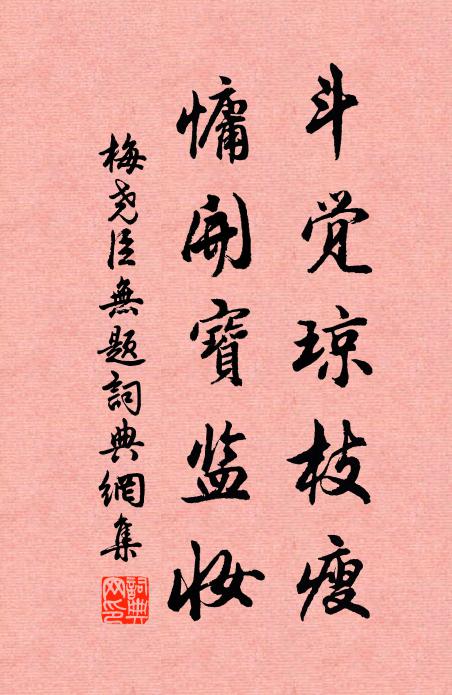 斗觉琼枝瘦
慵開寶监妆
梅尧臣無题詞典網集
詞典网印